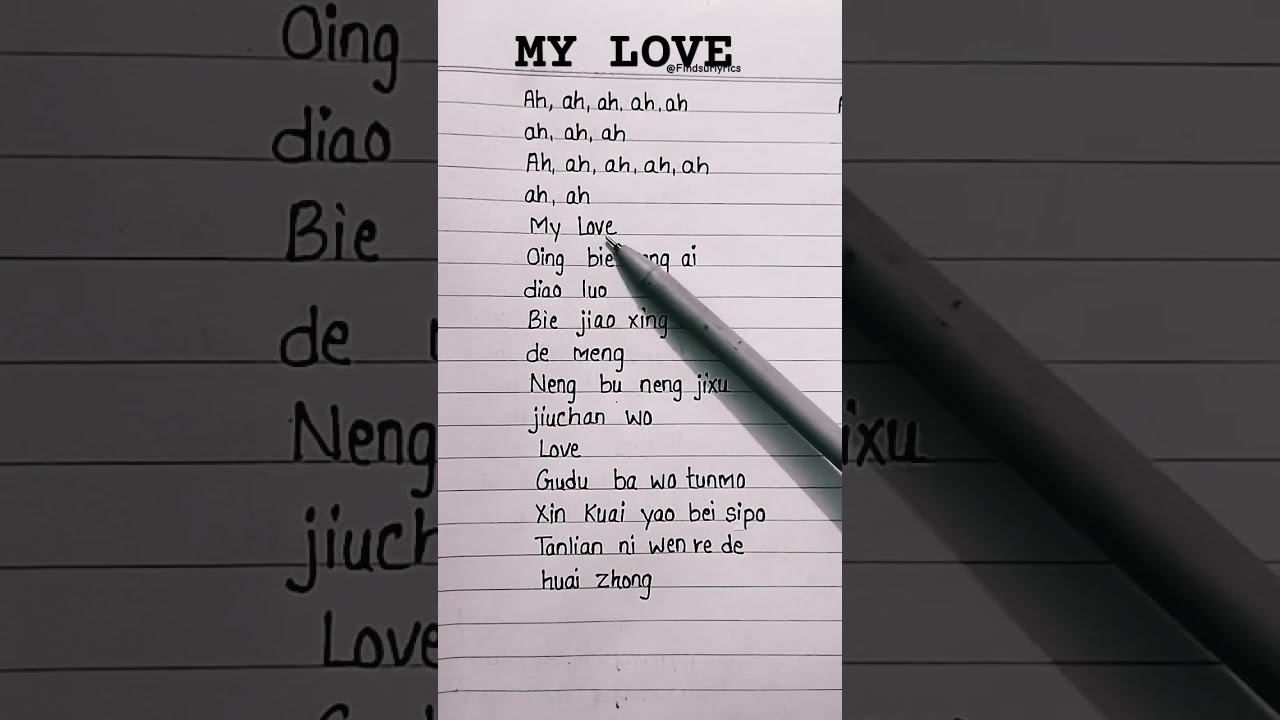 MY LOVE
@Findsurlyrics
Ah, ah, ah, ah, ah
ah, ah, ah
Ah, ah, ah, ah, ah
ah, ah
My Love
Oing bie ai
diao luo
Bie jiao xing
de meng
Neng bu neng jixu
jiuchan wo
Love
Gudu ba wo tunmo
Xin Kuai yao bei sipo
Tanlian ni wen re de
huai zhong